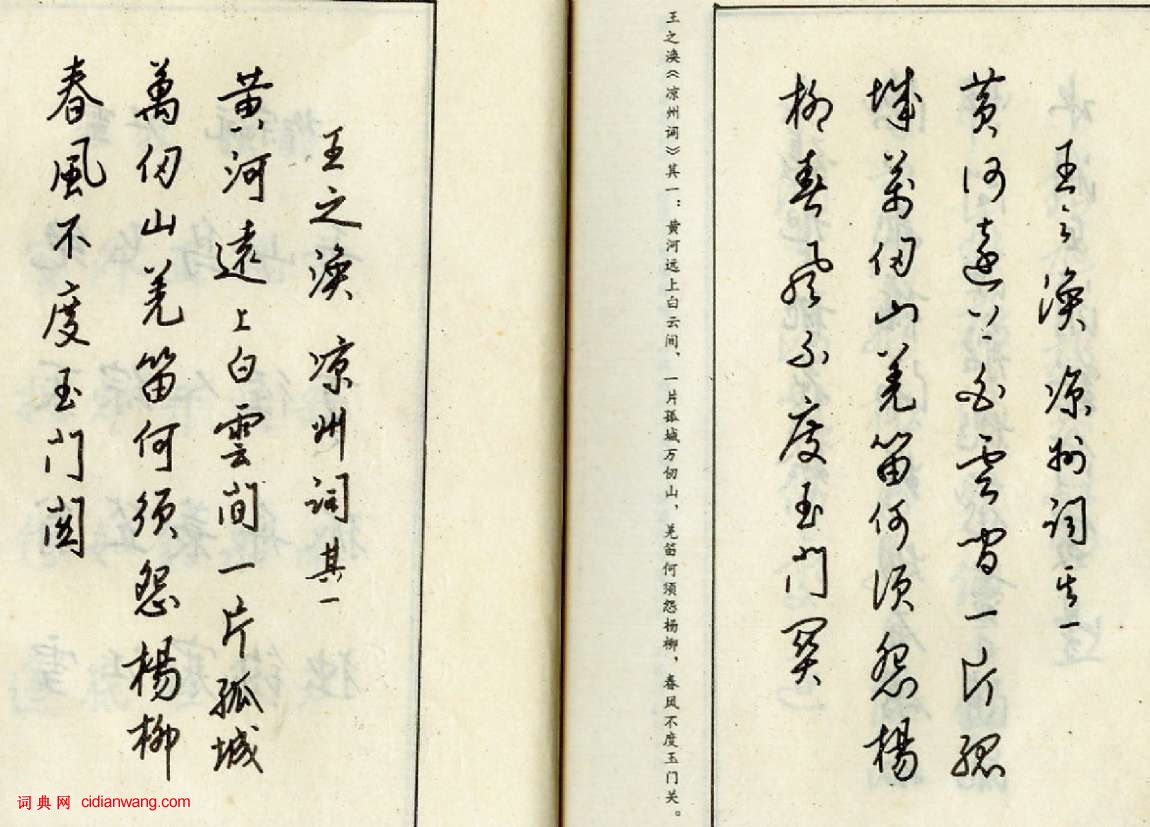 王之渙涼州詞其一
黃河遠上白雲間一片孤
城萬仞山羌笛何須怨楊
柳春風不度玉門關
王之涣《凉州词》其一：黄河远上白云间、一片孤城万仞山，羌笛何须怨杨柳，春风不度玉门关。
王之渙涼州詞其一
黃河遠上白雲間一片孤城
萬仞山羌笛何須怨楊柳
春風不度玉門關
词典网 cidianwang.com